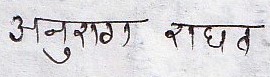 अनुराग राघव